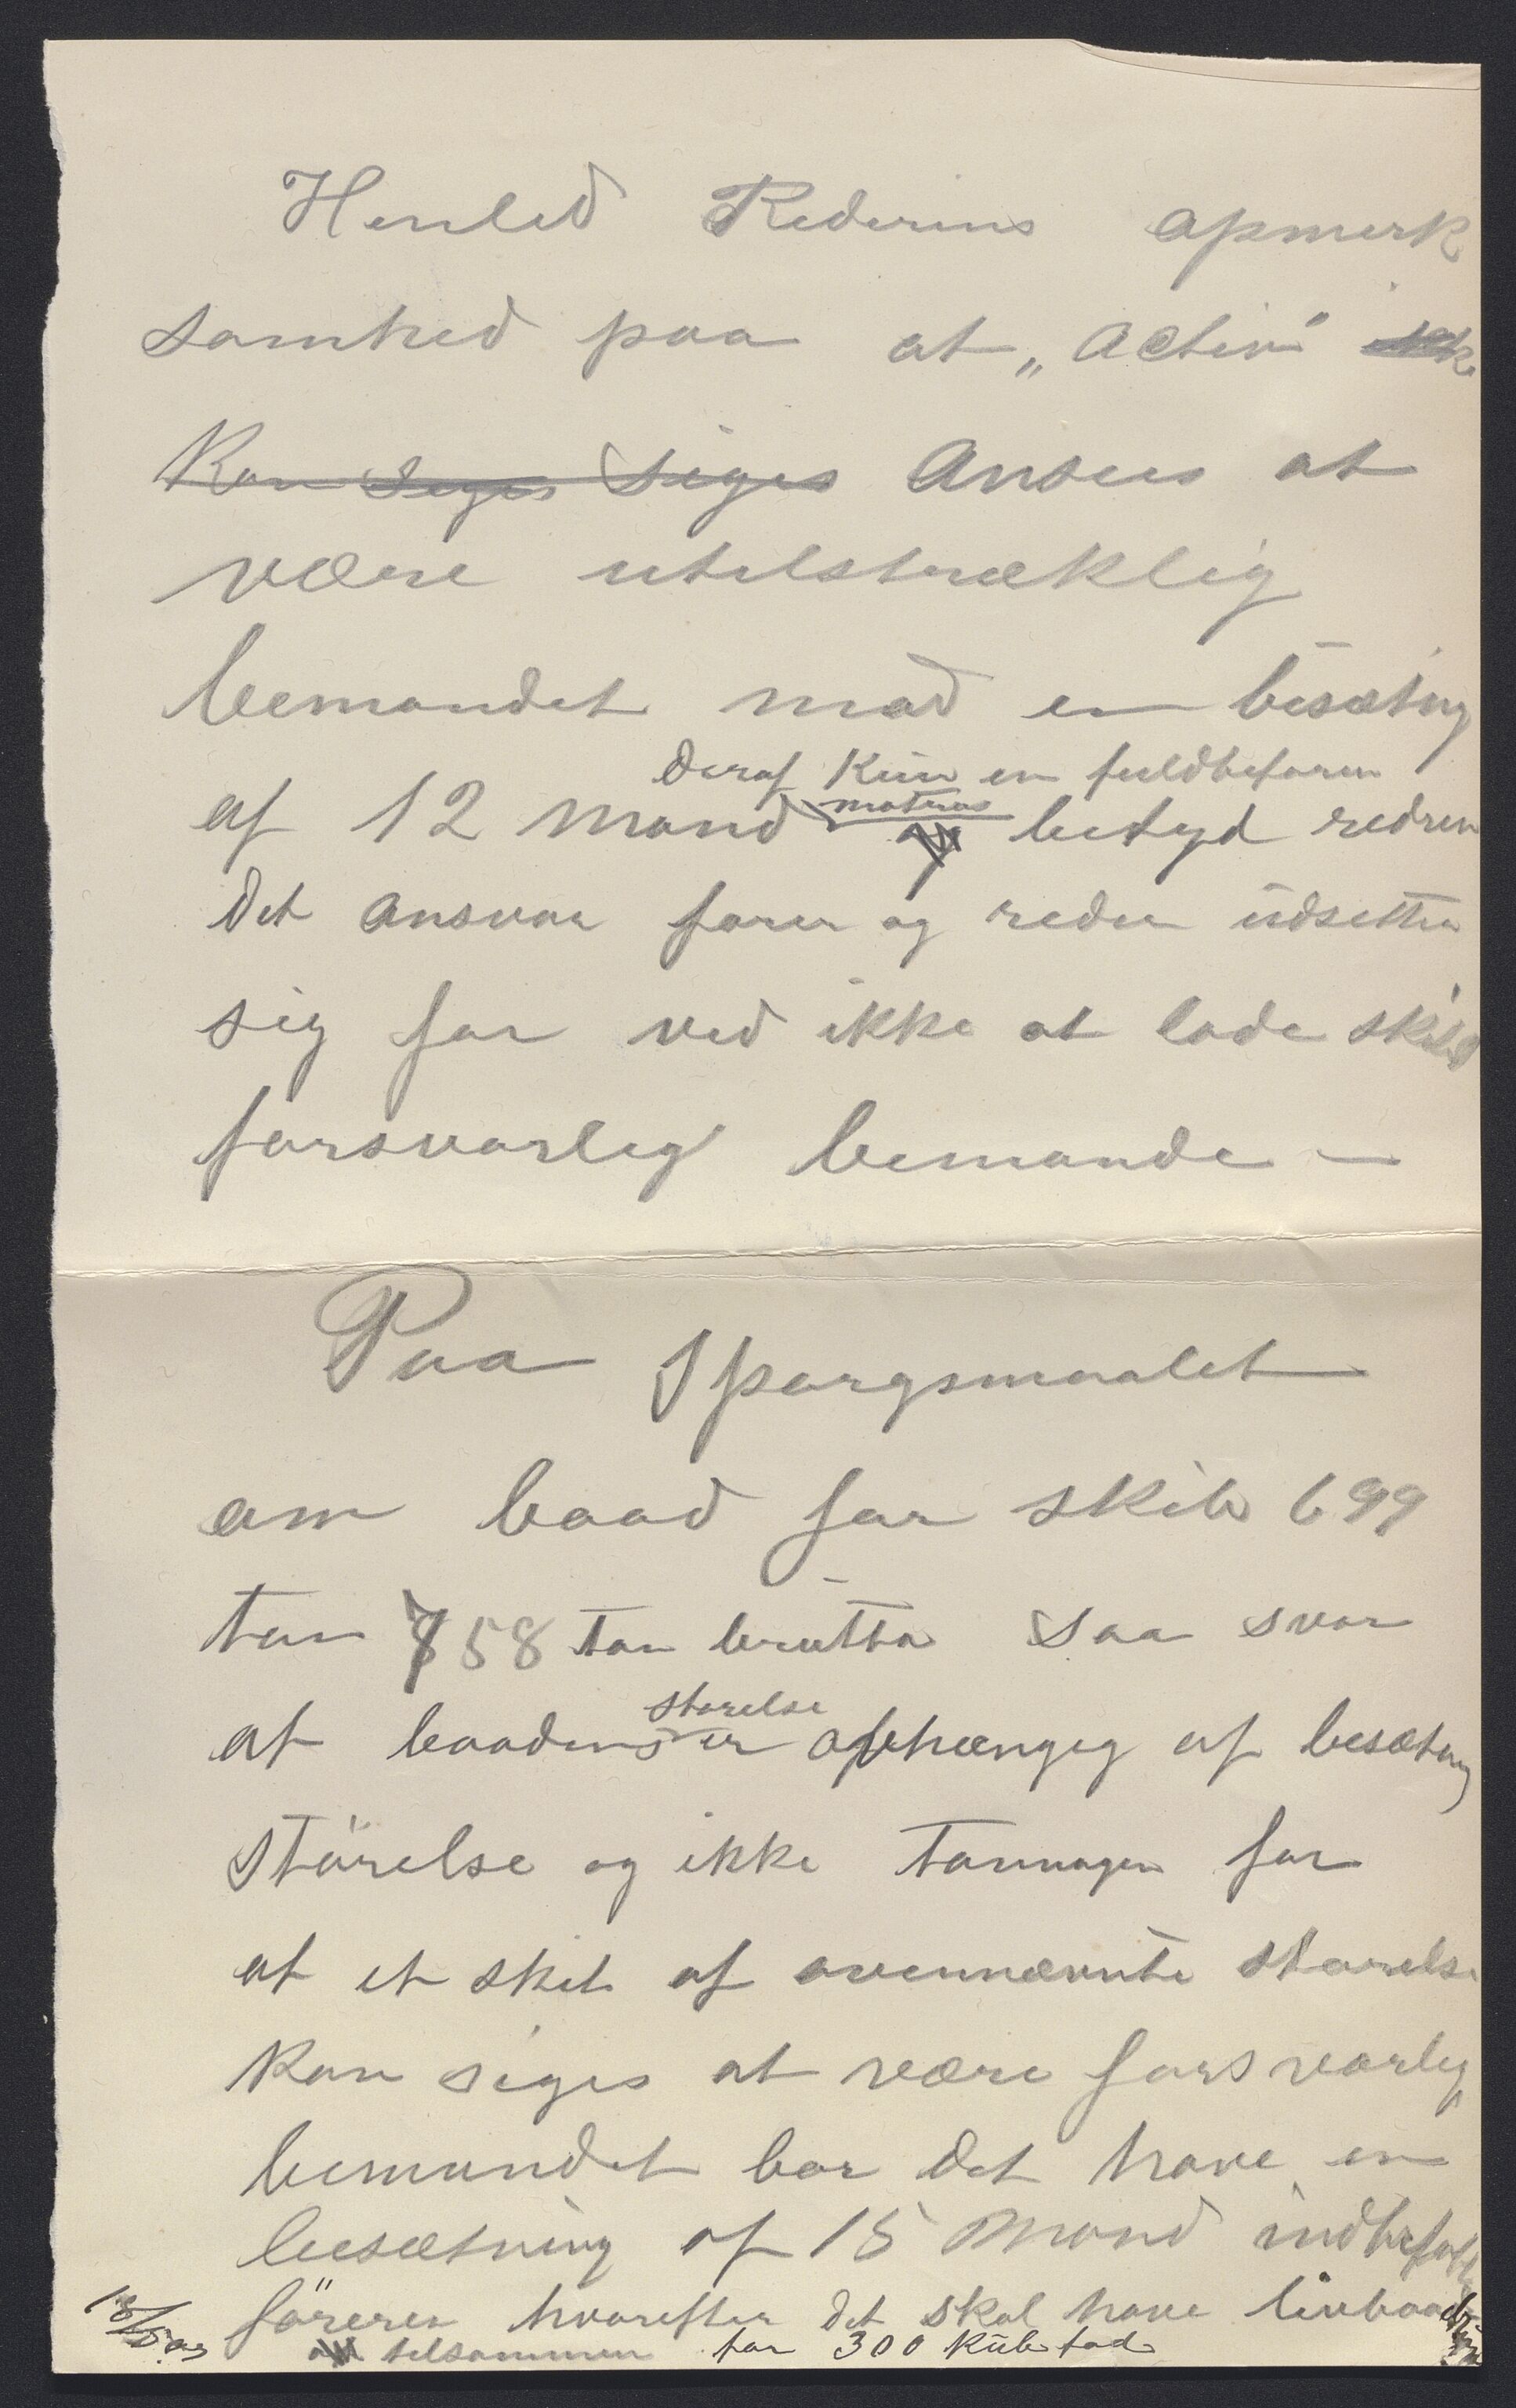 Henled Rederiens opmerk
samhed paa at „Activ"
Kan siges siges Ansees at
være utilstræklig
bemandet mad en besætng
deraf Kun en fuldbefaren
af 12 Mand matros betyd redren
det ansvar fører og reder udsetter
sig for ved ikke at lade skibet
forsvarlig bemande —
Paa Spørgsmaalet
om baad for skib 699
ton 758 ton brutto saa svar
størelse
at baadens er afhængig af besætng
Størelse og ikke Tonnagen for
at et skib af ovennævnte størelse
kan siges at være forsvarlig
bemandet bør det have en
besætning af 15 Mand indbefatt
föreren hvorefter det skal have livbaad
tilsammen for 300 Kub fod